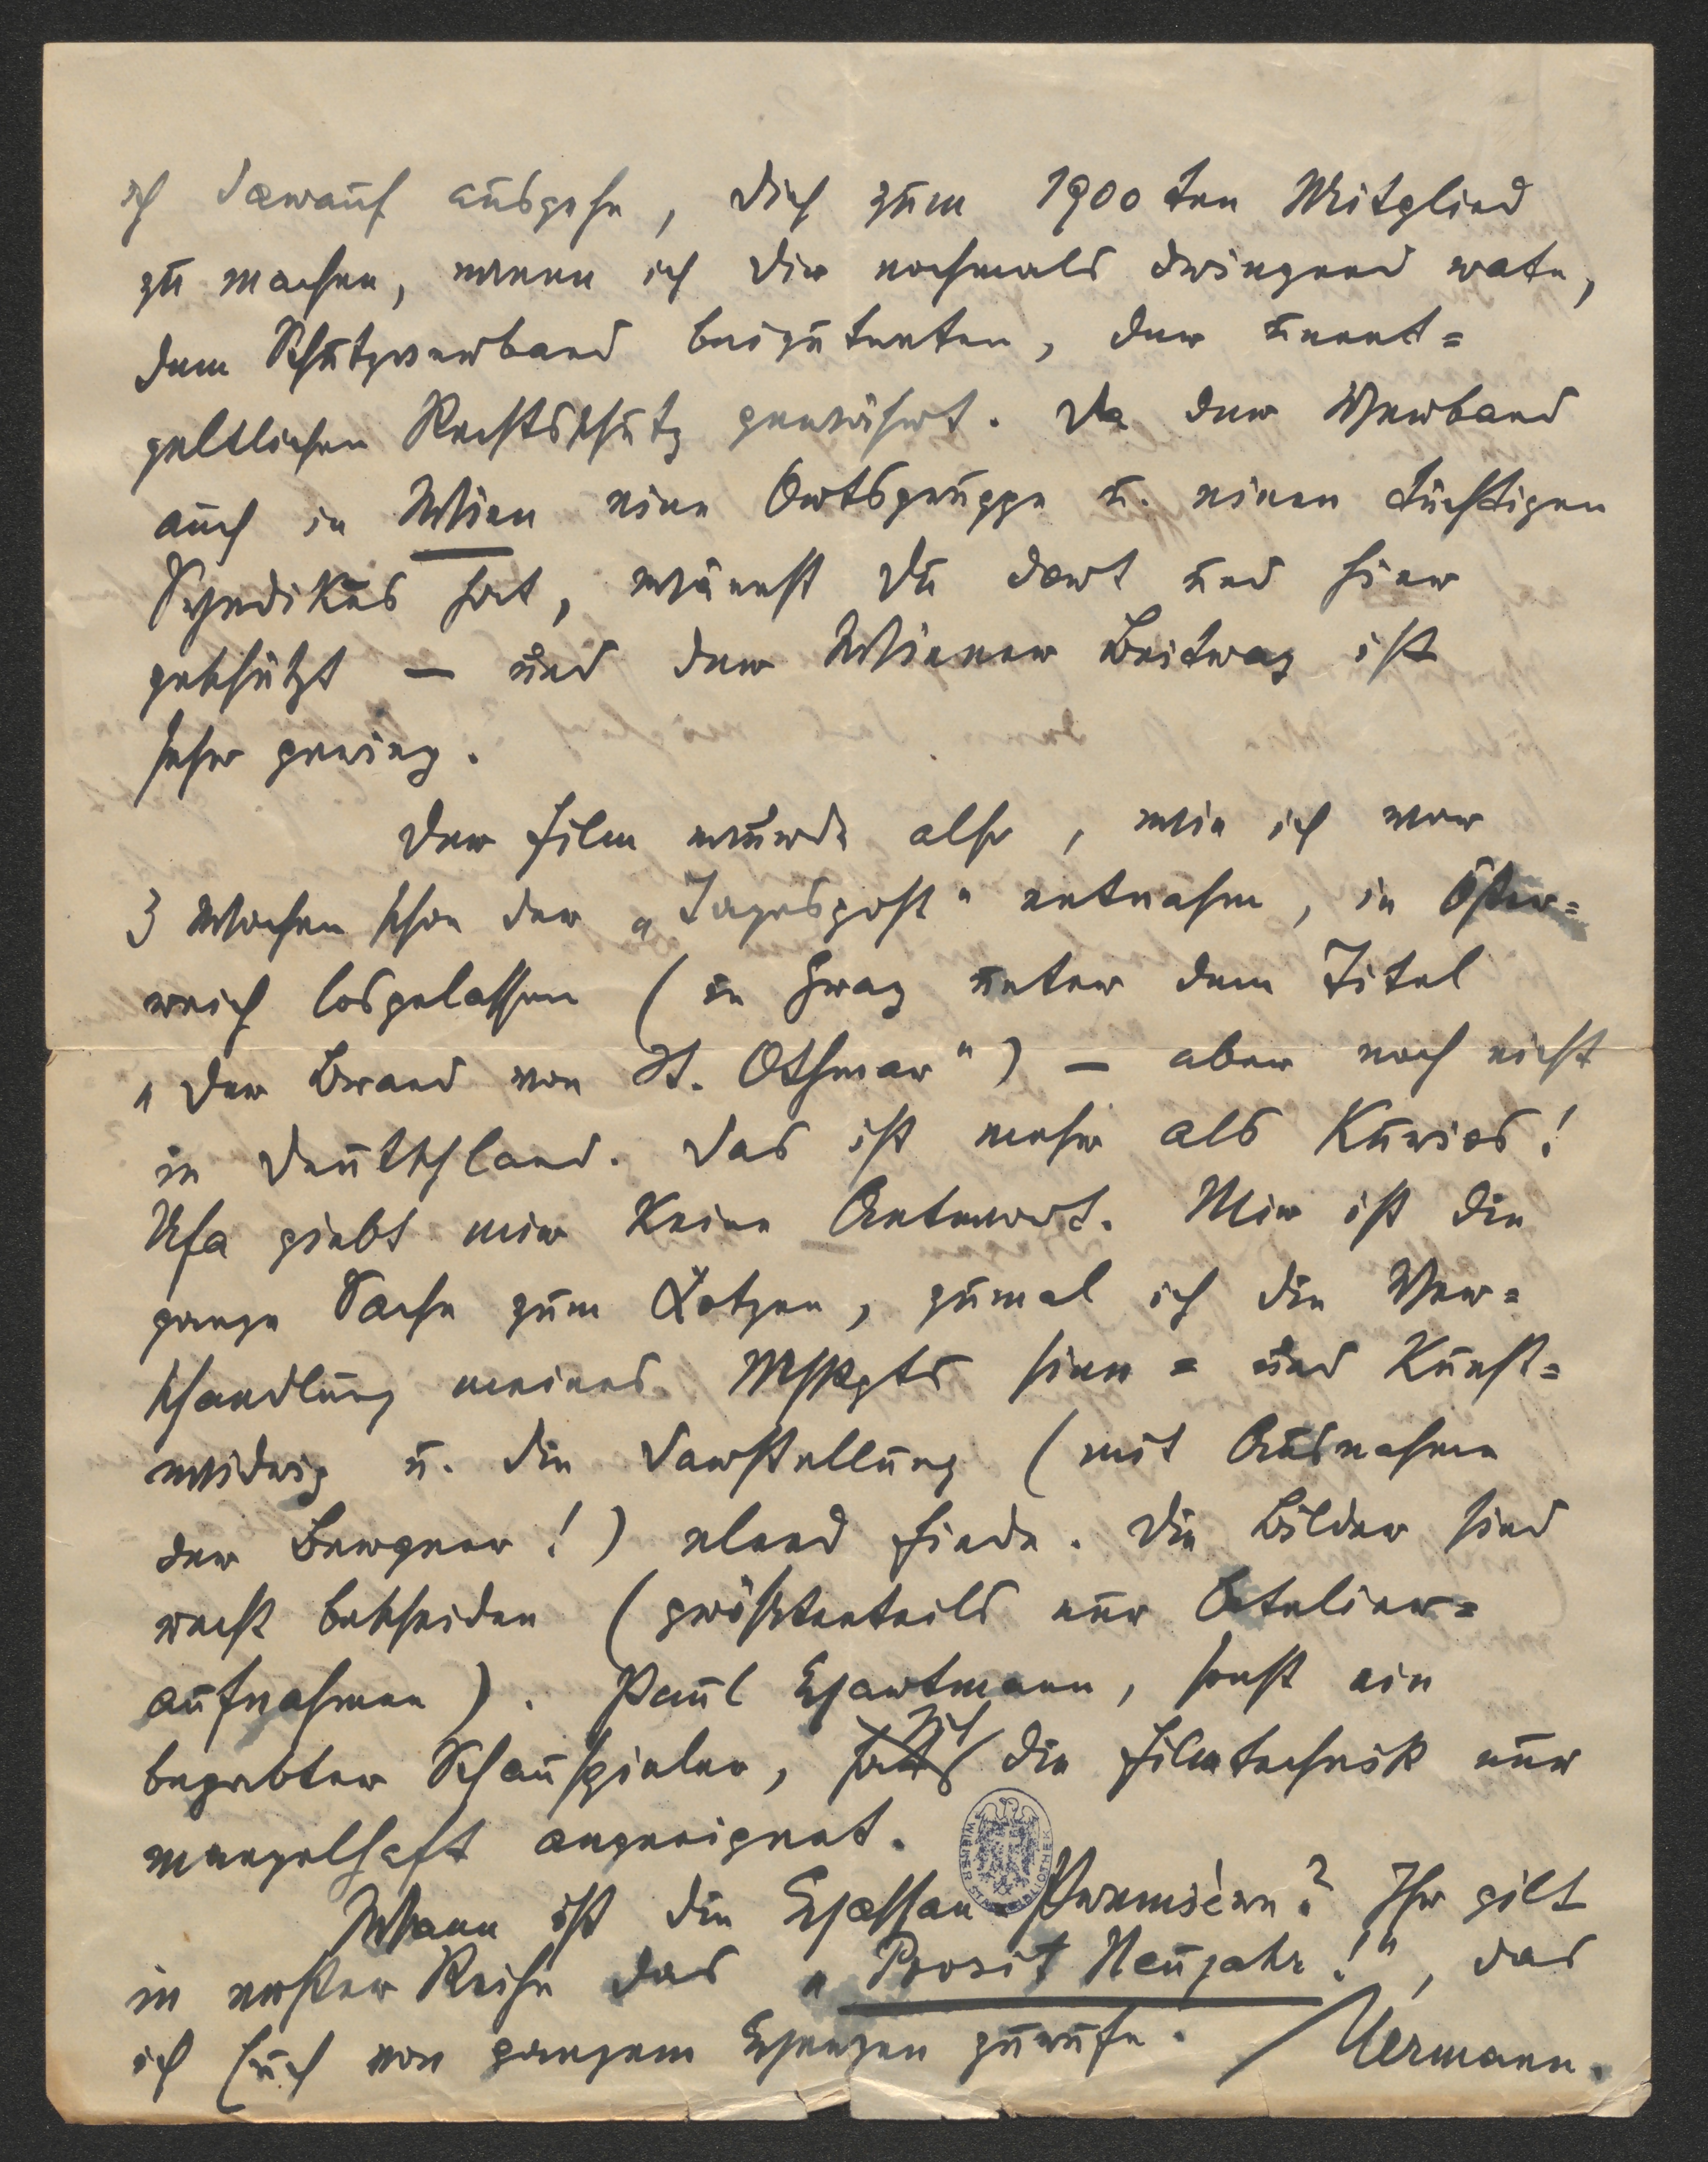 ich darauf ausgehe, Dich zum 1900ten Mitglied
zu machen, wenn ich Dir nochmals dringend rate,
dem Schutzverband beizutreten, der unent=
geltlichen Rechtsschutz gewährt. Da der Verband
auch in Wien eine Ortsgruppe u. einen tüchtigen
Syndikus hat, wärest Du dort und hier
geschützt — und der Wiener Beitrag ist
sehr gering.
Der Film wurde also, wie ich vor
3 Wochen schon der „Tagespost" entnahm, in Öster=
reich losgelassen (in Graz unter dem Titel
„Der Brand von St. Othmar") — aber noch nicht
in Deutschland. Das ist mehr als kurios!
Ufa giebt mir keine Antwort. Mir ist die
ganze Sache zum Kotzen, zumal ich die Ver=
schandlung meines Mskpts sinn= und kunst=
widrig u. die Darstellung (mit Ausnahme
der Bergner!) elend finde. Die Bilder sind
recht bescheiden (größtenteils nur Atelier=
aufnahmen). Paul Hartmann, sonst ein
begabter Schauspieler, hat sich die Filmtechnik nur
mangelhaft angeeignet.
Wann ist die Hassan-Premiére? Ihr gilt
in erster Reihe das „Prosit Neujahr!", das
ich Euch von ganzem Herzen zurufe. Hermann.
WIENER STADTBIBLIOTHEK